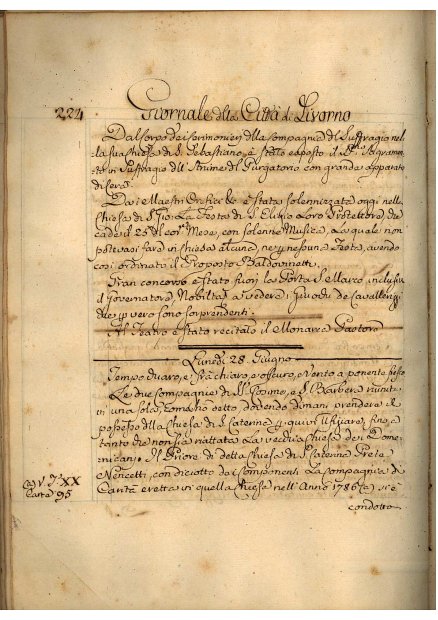 224 Giornale della Città di Livorno
Dal Corpo dei Cerimonieri della Compagnia del Suffragio nel-
la sua Chiesa di S. Sebastiano, è stato esposto il SS. Sagramen-
to in Suffragio dell'Anime del Purgatorio con grande apparato
di Cera.
Dai Maestri Orefici è stata solennizzata oggi nella
Chiesa di S. Gio. La Festa di S. Eligio Loro Protettore, che
cade il 25 del corr. Mese, con solenne Musica, La quale non
potevasi fare in Chiesa alcuna, per nessuna Festa, avendo
così ordinato il Proposto Baldovinetti.
Gran concorso è stato fuori la Porta S. Marco, inclusive
il Governatore, Nobiltà, a vedere i giuochi de Cavallerizzi
che in vero sono sorprendenti.
Al Teatro è stato recitato il Monarca Pastore
Lunedì 28. Giugno
Tempo vario, e frà chiaro, e oscuro, e Vento a ponente fresco
Le due Compagnie di SS. Cosimo, e S. Barbera riunite
in una sola, come ho detto, dovendo dimani prendere il
possesso della Chiesa di S. Caterina, e quivi uffiziare, fino a
tanto che non sia riattata La vecchia Chiesa dei Dome-
nicani. Il Priore di detta Chiesa di S. Caterina Prete
Nencetti, con diciotto dai Componenti La Compagnia di
Carità eretta in quella Chiesa nell'Anno 1786 (a) si è
XX
Carta 95
condotto